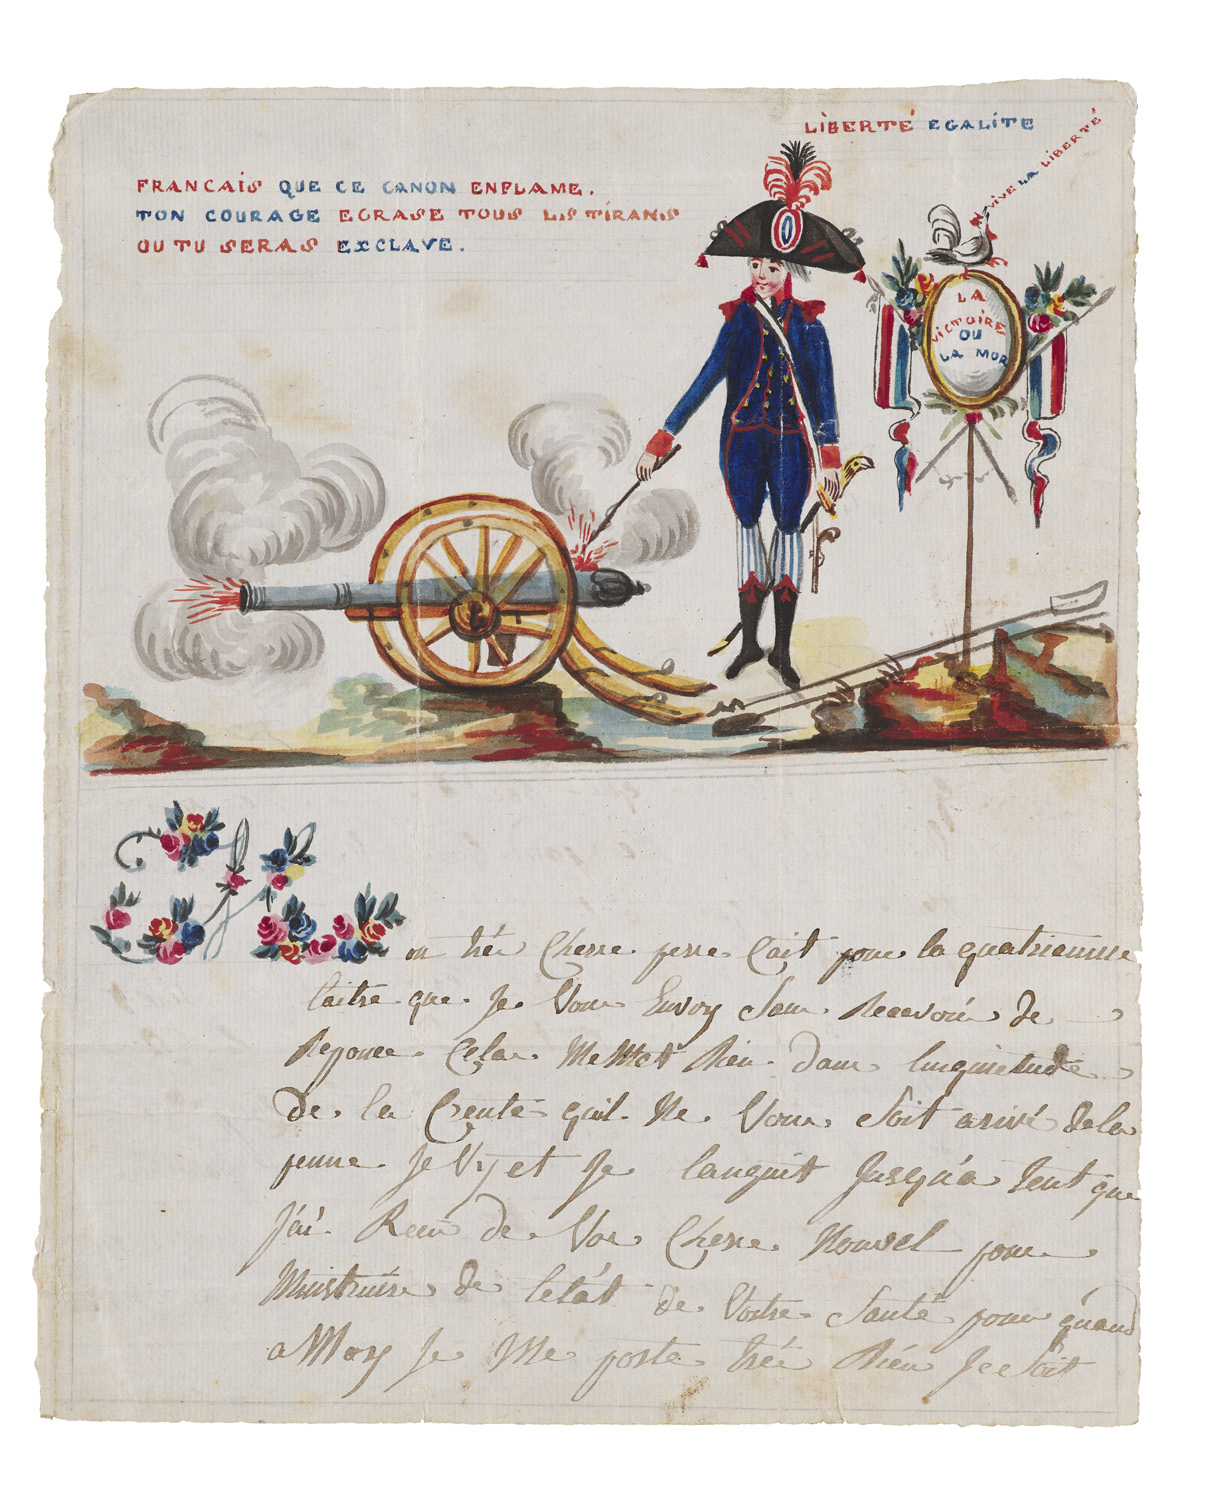 LIBERTÉ EGALITE
VIVE LA LIBERTÉ
FRANCAIS QUE CE CANON ENFLAME.
TON COURAGE ECRASE TOUS LES TIRANS
OU TU SERAS EXCLAVE.
LA
VICTOIRE
OU
LA MOR
Mon trée Cherre perre Cait pour la quatriemme
laitre que Je Vous Envoy Sans Recevoir de
Reponce Cela Me Met Bien dans linquietude
De la Crente quil Ne Vous Soit arivé dela
penne Je Vy et Je languit Jusqu'a tent que
J'ai Recu de Vos Cherre Nouvel pour
Minstruire de letat de Votre Santé pour quand
a Moy Je Me porte trée Bien Je Soit